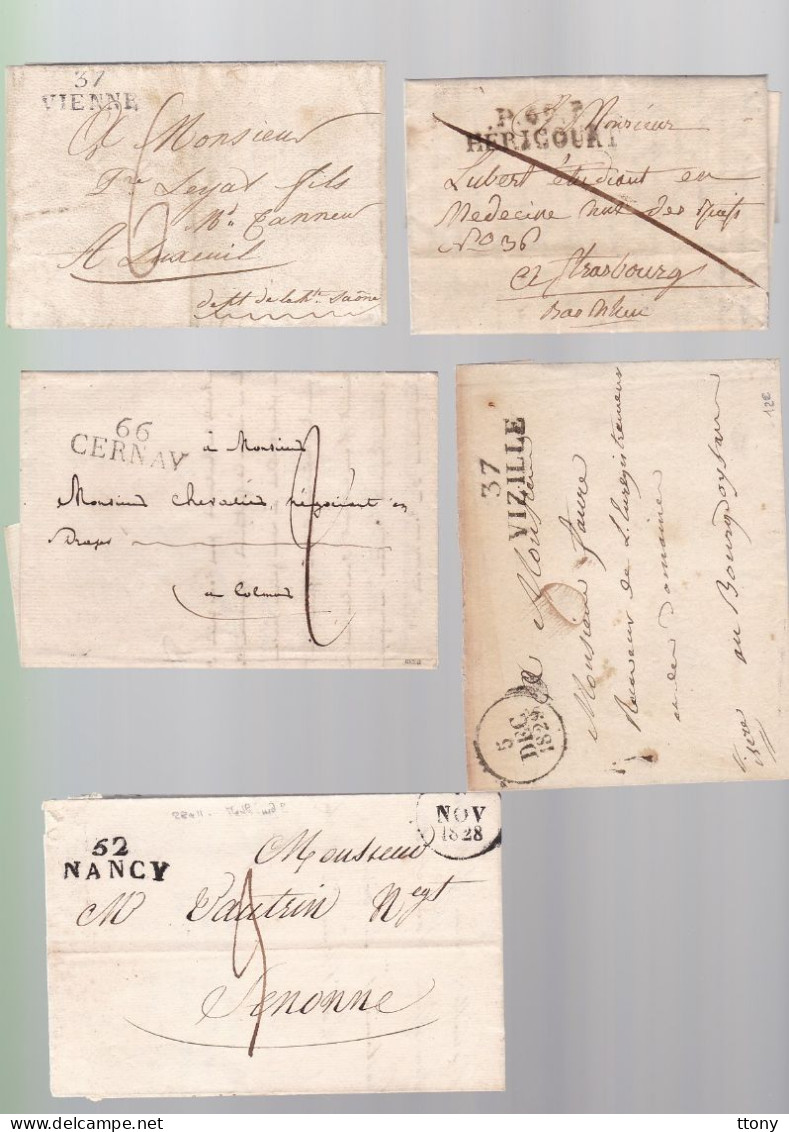 37
VIENNE
A Monsieur
Leyas fils
Md. Tanneur
A Luxeuil
dept de la Hte Saône
P.69.P
HÉRICOURT
Monsieur
Lubert étudiant en
Medecine rue des Juifs
No 36
a Strasbourg
Bas Rhin
66
CERNAY
à Monsieur
Monsieur Chevalier, négociant en
Draps
à Colmar
12E
37
VIZILLE
A Monsieur
Monsieur faure
Receveur de L'Enregistrement
et des Domaines
au Bourgdoysan
isère
5
DEC
182
NOV
1828
52
NANCY
Monsieur
Mr Vautrin Negt
Senonne
ttony